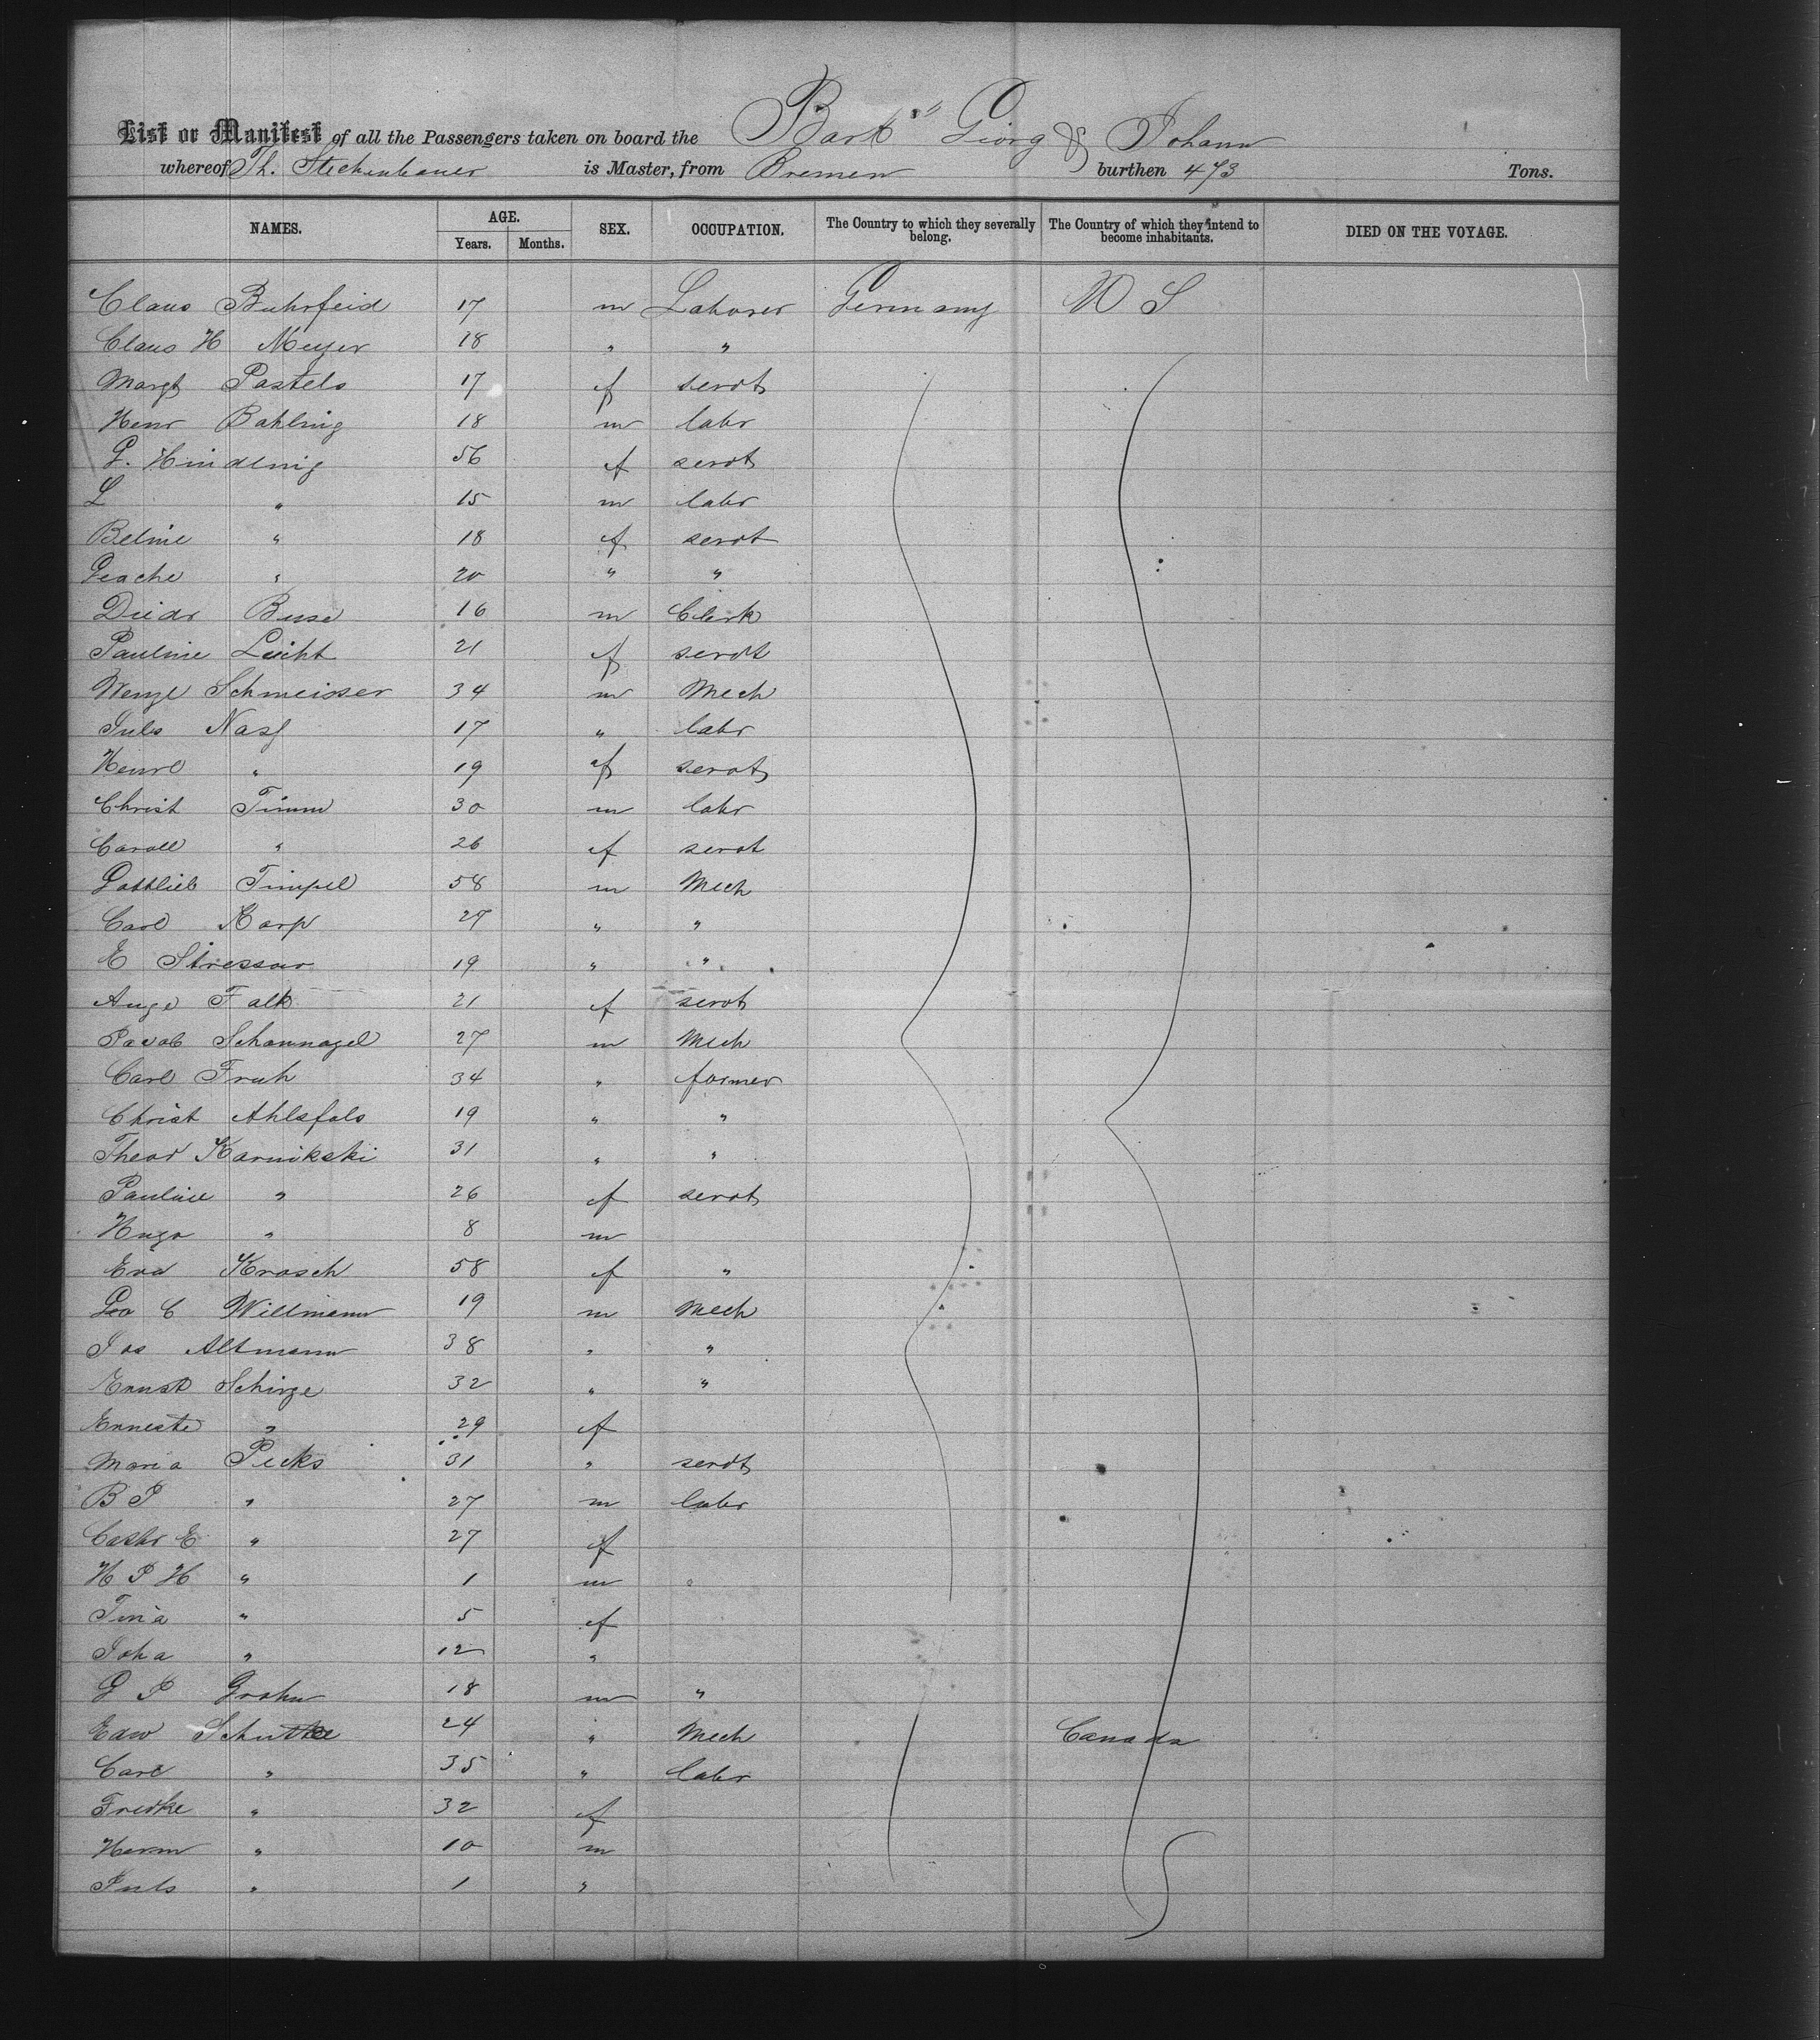 List or Manifest of all the Passengers taken on board the Bark "Georg & Johann
whereof Th. Stechenbauer is Master, from Bremen burthen 473 Tons.
NAMES. AGE. Years. Months. SEX. OCCUPATION. The Country to which they severally belong. The Country of which they intend to become inhabitants. DIED ON THE VOYAGE.
Claus Buhrfeid 17 m Laborer Germany U S
Claus H Meyer 18 " "
Margt Pastels 17 f servt
Henr Bahling 18 m labr
G. Hindenig 56 f servt
L " 15 m labr
Beline " 18 f servt
Geache " 20 " "
Diedr Buse 16 m Clerk
Pauline Leicht 21 f servt
Wenzl Schmeisser 34 m Mech
Juls Nasf 17 " labr
Henre " 19 f servt
Christ Timm 30 m labr
Caroll " 26 f servt
Gottlieb Timpel 58 m Mech
Carl Karp 27 " "
E Stressow 19 " "
Auge Falk 21 f servt
Jacob Schannagel 27 m Mech
Carl Fruh 34 " farmer
Christ Ahlsfals 19 " "
Theod Karnikski 31 " "
Pauline " 26 f servt
Hugo " 8 m
Eva Krasch 58 f "
Geo C Willmann 19 m Mech
Jos Altmann 38 " "
Ernst Schirge 32 " "
Erneste " 29 f
Maria Picks 31 " servt
B P " 27 m labr
Cathr E " 27 f
H P H " 1 m
Tina " 5 f
Joha " 12 "
G P Grahn 18 m "
Edw Schuttke 24 " Mech Canada
Carl " 35 " labr
Fredke " 32 f
Herm " 10 m
Juls " 1 "